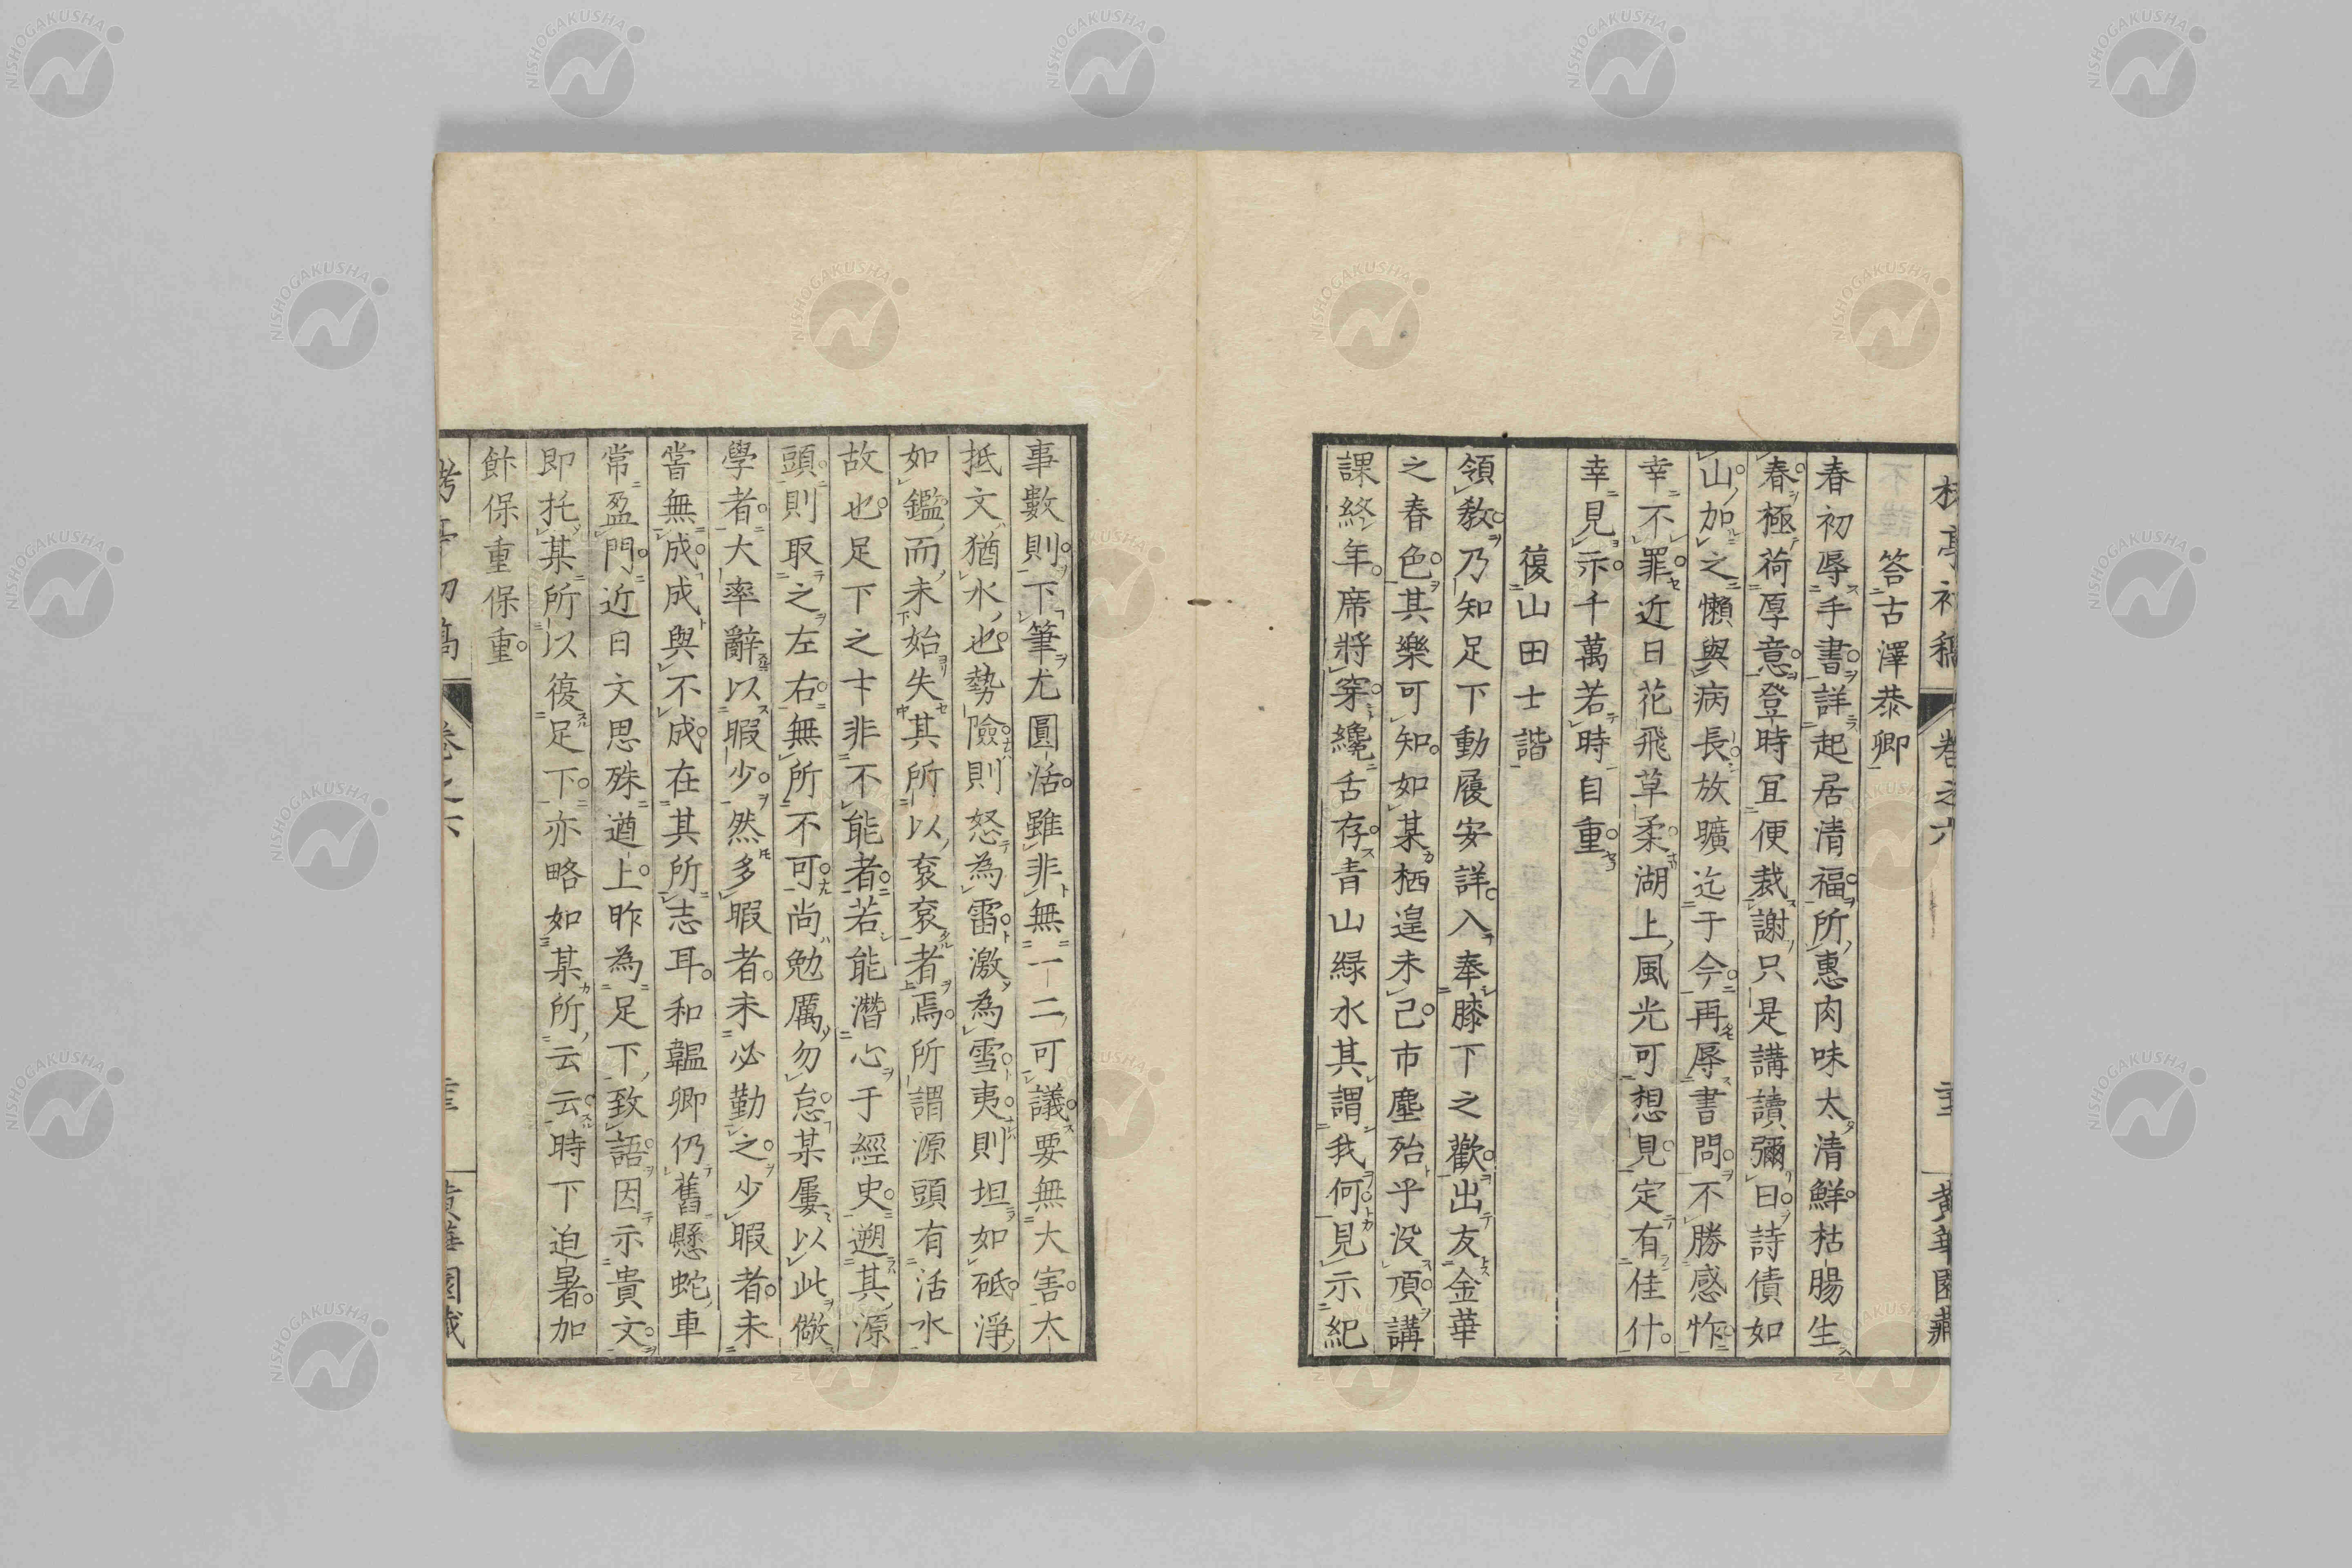 答古澤恭卿
春初辱手書詳起居清福所惠肉味太清鮮枯腸生
春極荷厚意登時宜便裁謝只是講讀彌日詩債如
山加之懶與病長放曠迄于今再辱書問不勝感怍
幸不罪近日花飛草柔湖上風光可想見定有佳什
幸見示千萬若時自重
復山田士諧
領教乃知足下動履安詳入奉膝下之歡出友金華
之春色其樂可知如某栖遑未已市塵殆乎没頂講
課終年席將穿纔舌存青山緑水其謂我何見示紀
事數則下筆尤圓活雖非無一二可議要無大害大
抵文猶水也勢險則怒為雷激為雪夷則坦如砥淨
如鑑而未始失其所以袞袞者焉所謂源頭有活水
故也足下之才非不能者若能潛心于經史遡其源
頭則取之左右無所不可尚勉厲勿怠某屢以此儆
學者大率辭以暇少然多暇者未必勤之少暇者未
嘗無成成與不成在其所志耳和韞卿仍舊懸蛇車
常盈門近日文思殊遒上昨為足下致語因示貴文
即托某所以復足下亦略如某所云云時下迫暑加
飰保重保重
卷之六
黄華園藏